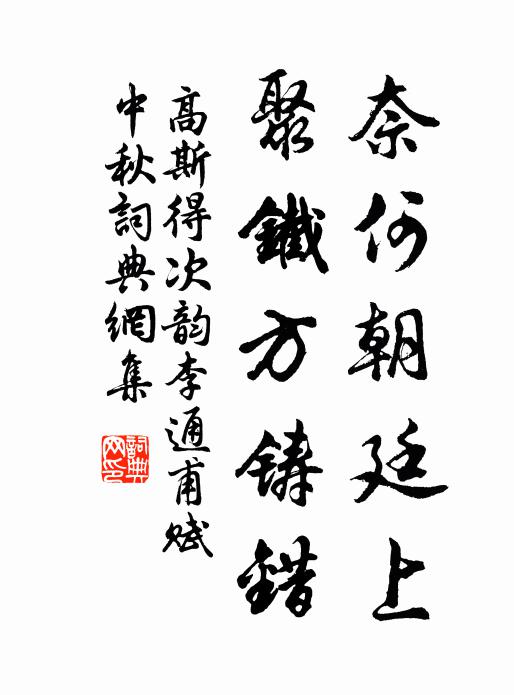 奈何朝廷上
聚鐵方铸錯
高斯得次韵李通甫赋
中秋詞典網集
詞典网印